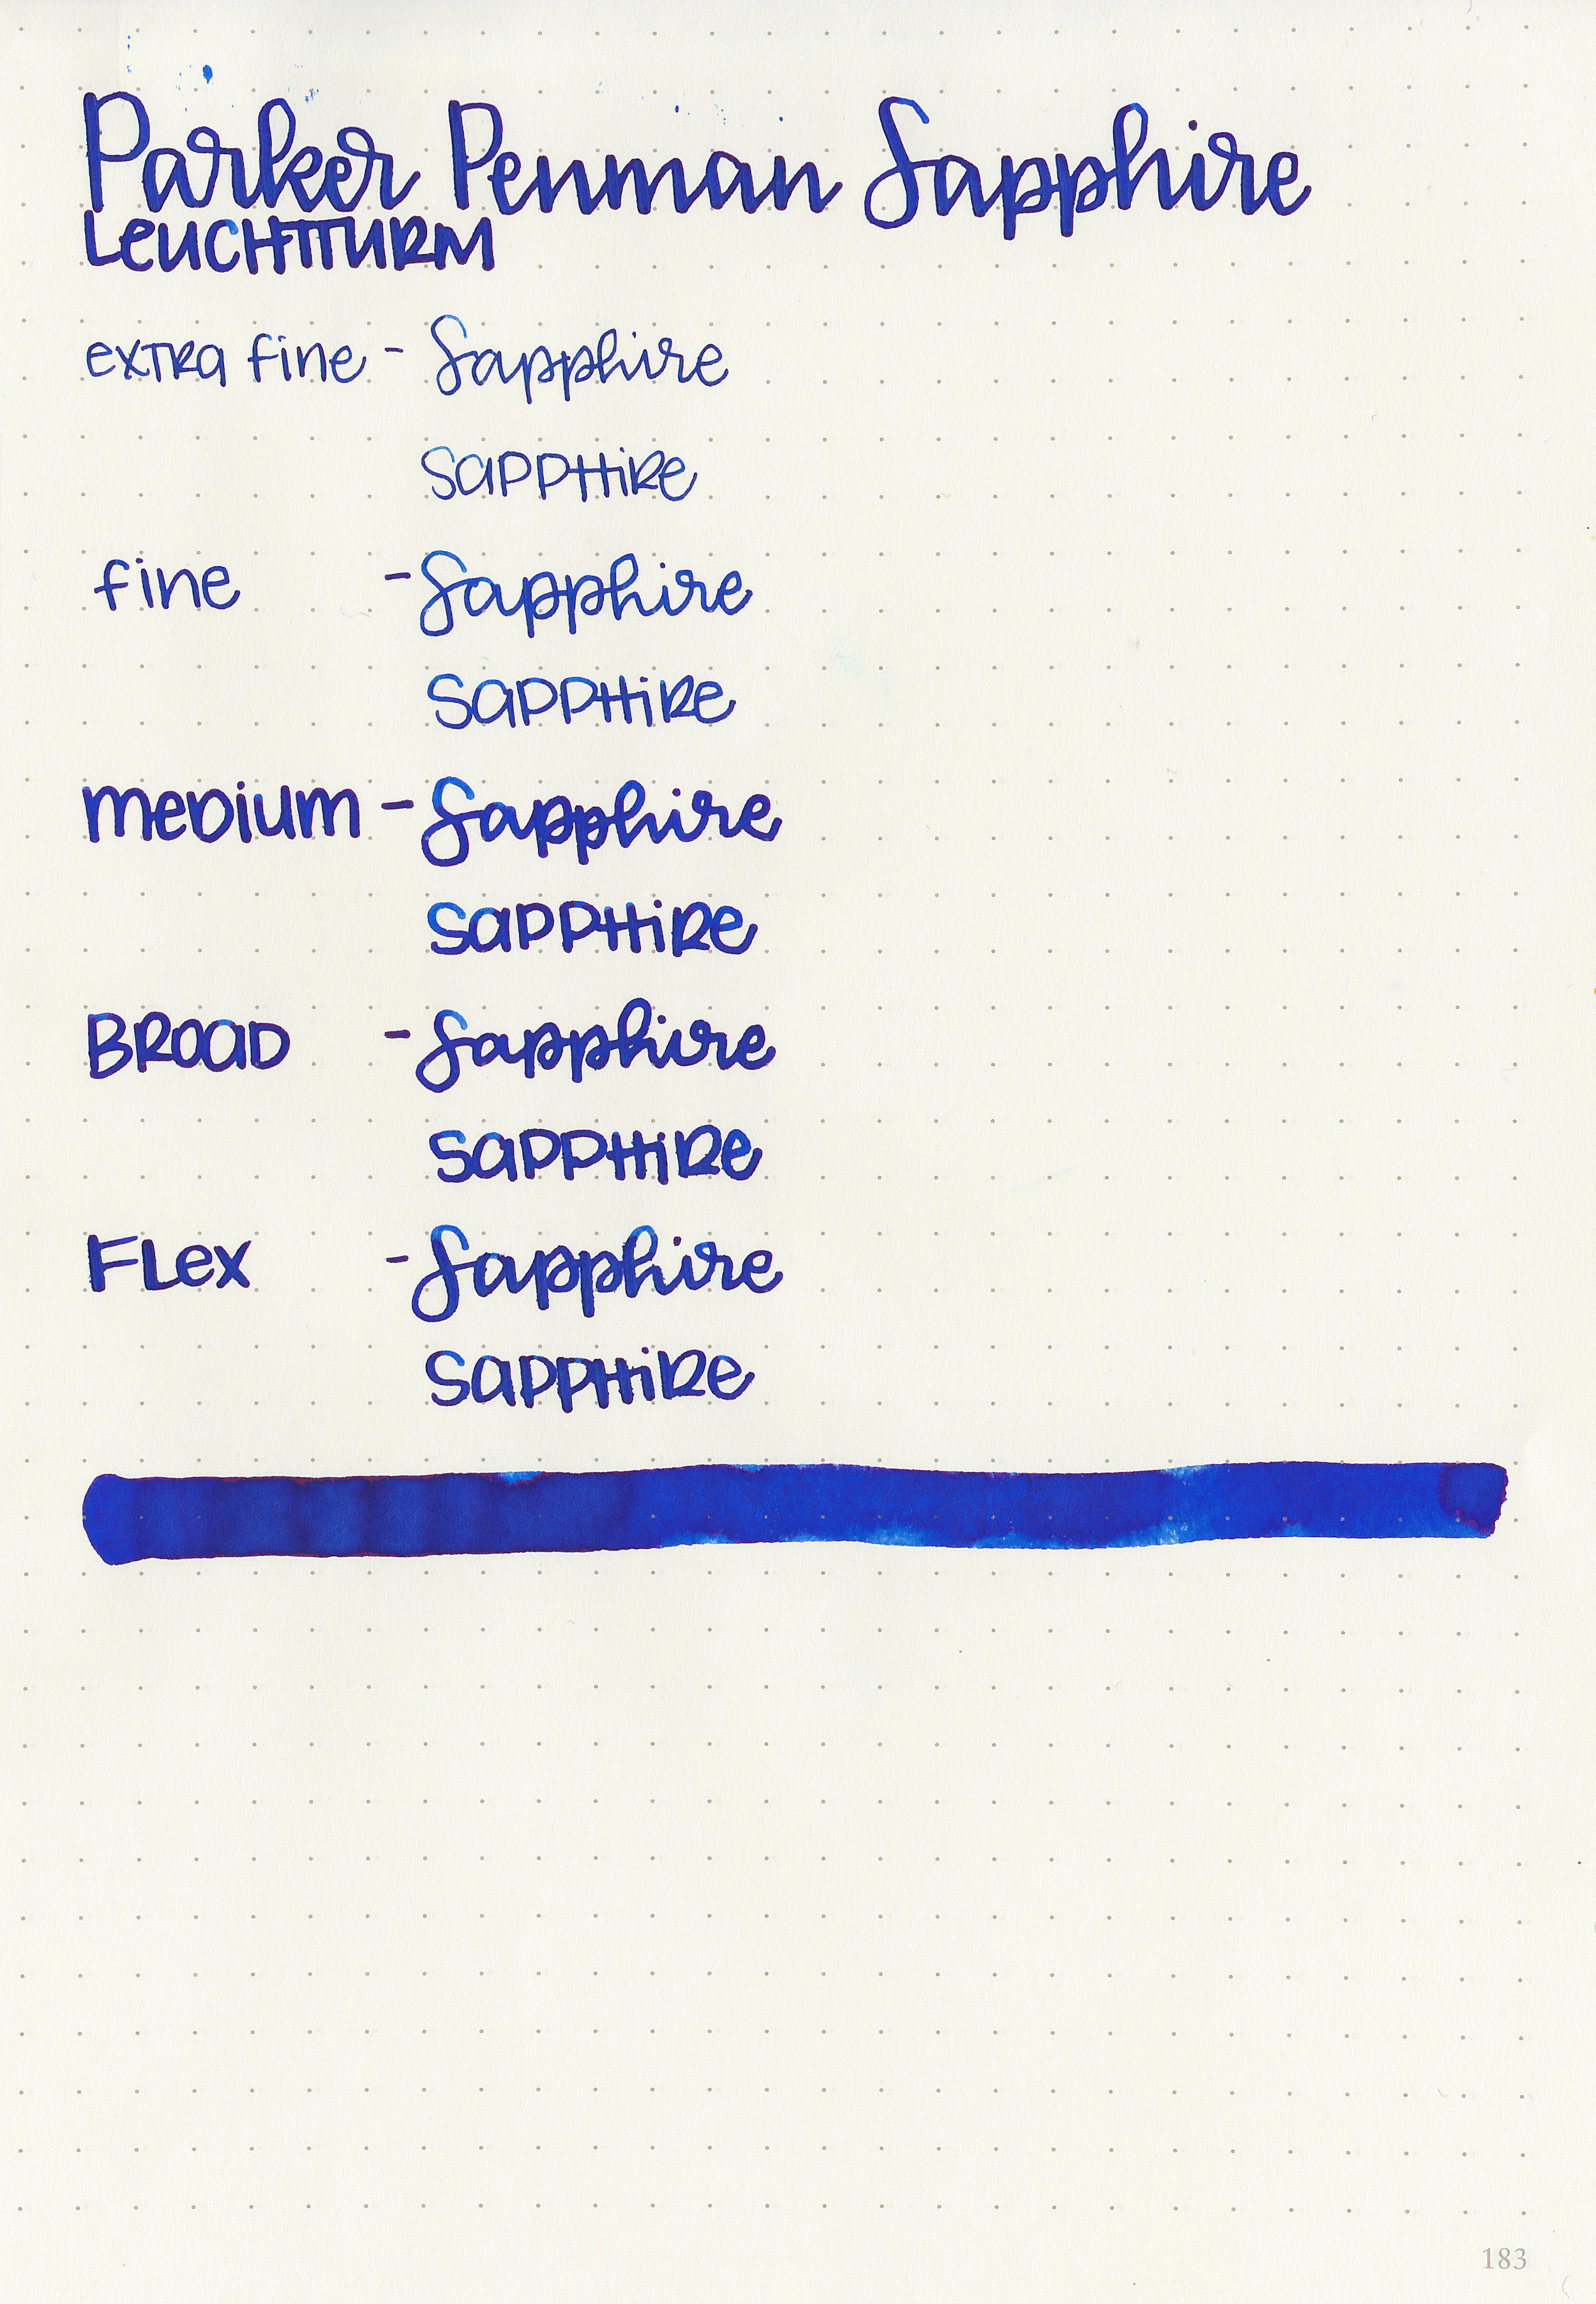 Parker Penman Sapphire
LEUCHTTURM
EXTRA fine - Sapphire
SAPPHIRE
fine - Sapphire
SAPPHIRE
MEDIUM - Sapphire
SAPPHIRE
BROAD - Sapphire
SAPPHIRE
FLEX - Sapphire
SAPPHIRE
183